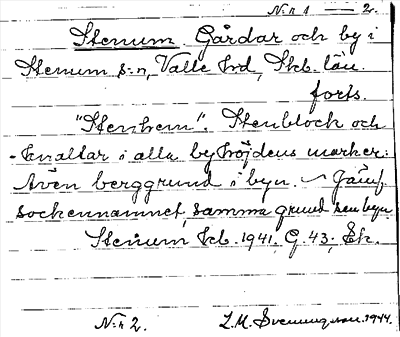 N:r 1 — 2.
Stenum. Gårdar och by i
Stenum s:n, Valle hrd, Skb. län.
forts.
"Stenhem". Stenblock och
-knallar i alla byhöjdens marker.
Även berggrund i byn. Jämf
sockennamnet, samma grund som byn
Stenum kb. 1941. G. 43. Ek.
N:r 2. L.M. Svenungsson. 1944.